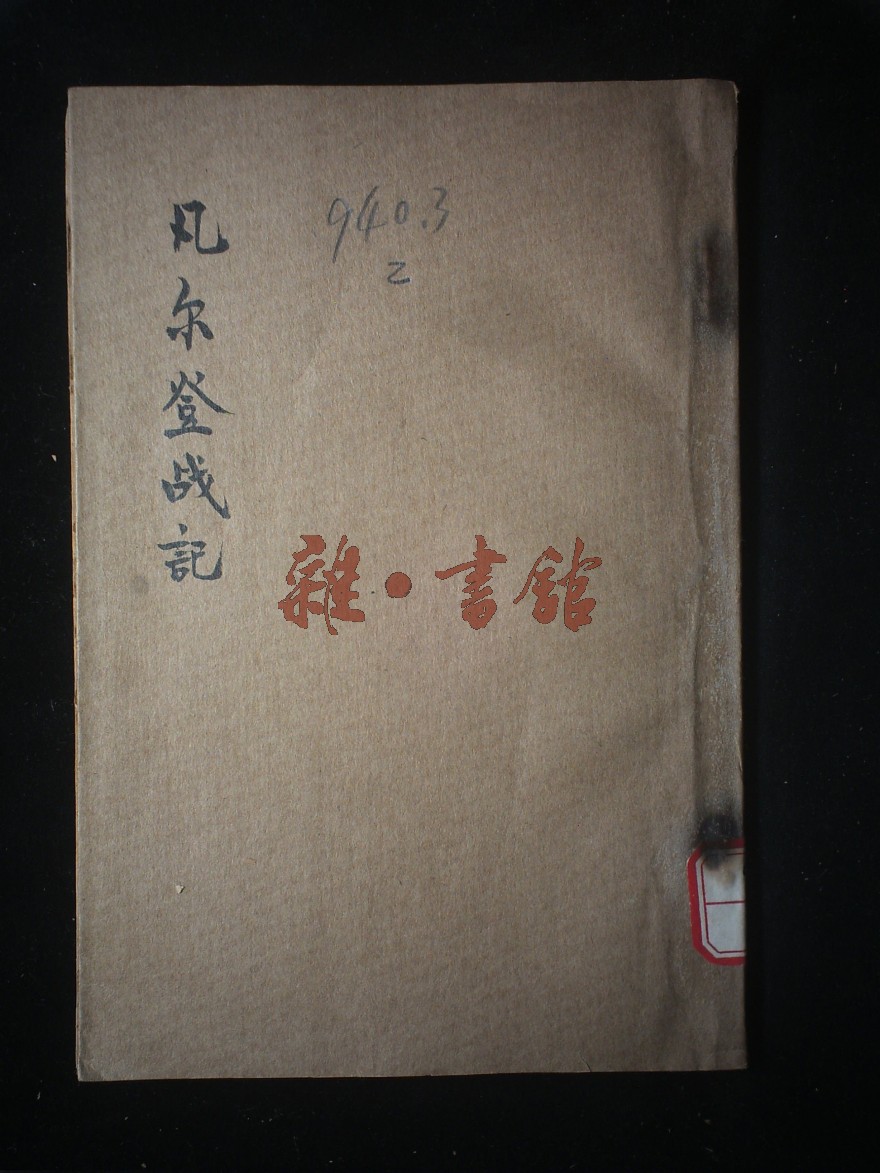 凡尔登战記
940.3
乙
雜·書館